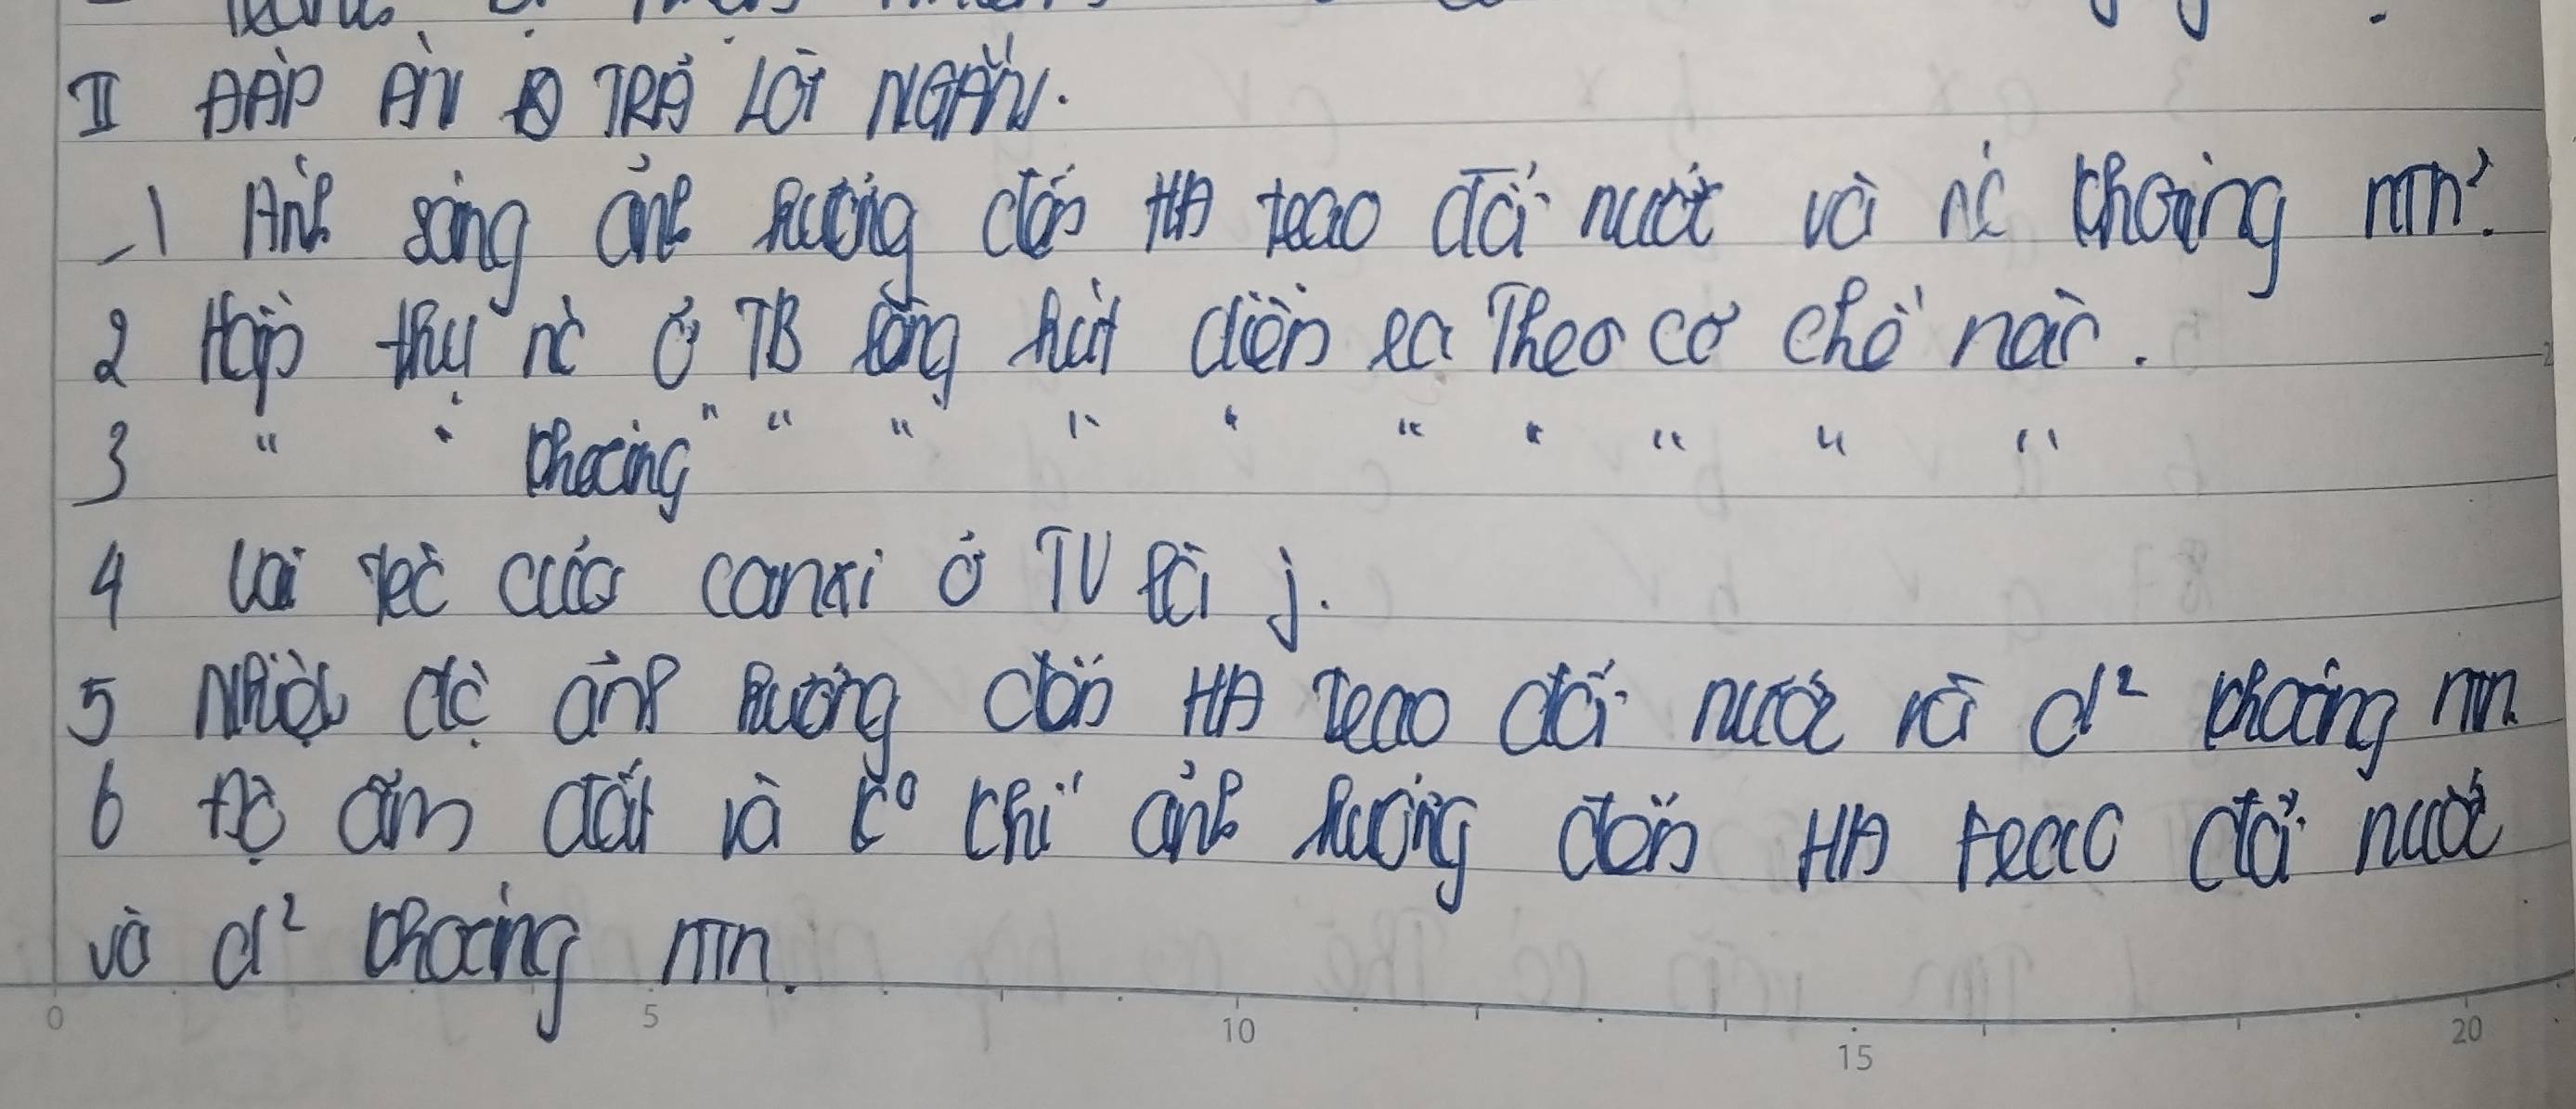 II ĐÁP ÁN TRẢ LỜI NGẮN.
1 Ánh sáng ảnh hưởng đến HĐ trao đổi nước và nc khoáng ntn?
2 Hấp thụ nc ở TB lông hút diễn ra Theo cơ chế nào.
3 " " khoáng " " " " " " " " " "
4 Vai trò của canxi ở TV là j.
5 Nhiệt độ ảnh hưởng đến HĐ Trao đổi nước và d² khoáng ntn
6 Độ ẩm đất và k⁰ khí ảnh hưởng đến HĐ trao đổi nước
và d² khoáng ntn.
0 5 10 15 20